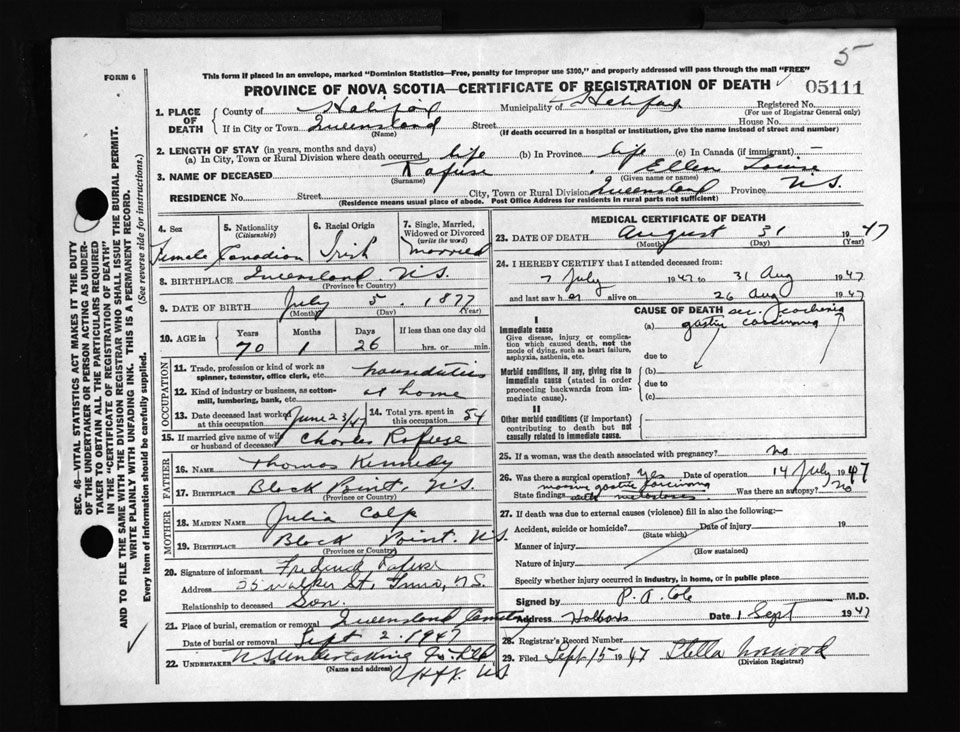 5
FORM 6
This form if placed in an envelope, marked "Dominion Statistics—Free, penalty for improper use $300," and properly addressed will pass through the mail "FREE"
PROVINCE OF NOVA SCOTIA—CERTIFICATE OF REGISTRATION OF DEATH 05111
1. PLACE OF DEATH County of Halifax Municipality of Halifax Registered No.
(For use of Registrar General only)
If in City or Town Queensland Street House No.
(Name) (If death occurred in a hospital or institution, give the name instead of street and number)
2. LENGTH OF STAY (in years, months and days)
(a) In City, Town or Rural Division where death occurred life (b) In Province life (c) In Canada (if immigrant) —
3. NAME OF DECEASED Rafuse Ellen Louise
(Surname) (Given name or names)
RESIDENCE No. Street City, Town or Rural Division Queensland Province N.S.
(Residence means usual place of abode. Post Office Address for residents in rural parts not sufficient)
4. Sex Female
5. Nationality (Citizenship) Canadian
6. Racial Origin Irish
7. Single, Married, Widowed or Divorced (write the word) Married
8. BIRTHPLACE Queensland N.S.
(Province or Country)
9. DATE OF BIRTH July 5. 1877
(Month) (Day) (Year)
10. AGE in Years Months Days If less than one day old
70 1 26 hrs. or min.
OCCUPATION
11. Trade, profession or kind of work as spinner, teamster, office clerk, etc. housduties
12. Kind of industry or business, as cotton-mill, lumbering, bank, etc. at home
13. Date deceased last worked at this occupation June 23/47 14. Total yrs. spent in this occupation 54
15. If married give name of wife or husband of deceased Charles Rafuse
FATHER
16. NAME Thomas Kennedy
17. BIRTHPLACE Black Point, N.S.
(Province or Country)
MOTHER
18. MAIDEN NAME Julia Colp
19. BIRTHPLACE Black Point. N.S.
(Province or Country)
20. Signature of informant Fredrick Rafuse
Address 55 Walker St, Truro, N.S.
Relationship to deceased Son.
21. Place of burial, cremation or removal Queensland Cemetery
Date of burial or removal Sept 2. 1947
22. UNDERTAKER N S Undertaking Co. Ltd
(Name and address) Hfx. NS
MEDICAL CERTIFICATE OF DEATH
23. DATE OF DEATH August 31 1947
(Month) (Day) (Year)
24. I HEREBY CERTIFY that I attended deceased from:
7 July 1947 to 31 Aug 1947
and last saw her alive on 26 Aug 1947
CAUSE OF DEATH
I
Immediate cause
Give disease, injury or complication which caused death, not the mode of dying, such as heart failure, asphyxia, asthenia, etc.
(a) gastric carcinoma
due to
Morbid conditions, if any, giving rise to immediate cause (stated in order proceeding backwards from immediate cause).
(b)
due to
(c)
II
Other morbid conditions (if important) contributing to death but not causally related to immediate cause.
25. If a woman, was the death associated with pregnancy? no
26. Was there a surgical operation? yes Date of operation 14 July 1947
State findings massive gastric carcinoma with metastases Was there an autopsy? No
27. If death was due to external causes (violence) fill in also the following:—
Accident, suicide or homicide? Date of injury 19
(State which)
Manner of injury
(How sustained)
Nature of injury
Specify whether injury occurred in industry, in home, or in public place
Signed by P. A. Cole M.D.
Address Hubbards Date 1 Sept 1947
28. Registrar's Record Number
29. Filed Sept 15 1947 Stella Norwood
(Division Registrar)
SEC. 46—VITAL STATISTICS ACT MAKES IT THE DUTY
OF THE UNDERTAKER OR PERSON ACTING AS UNDER-
TAKER TO OBTAIN ALL THE PARTICULARS REQUIRED
IN THE "CERTIFICATE OF REGISTRATION OF DEATH"
AND TO FILE THE SAME WITH THE DIVISION REGISTRAR WHO SHALL ISSUE THE BURIAL PERMIT.
WRITE PLAINLY WITH UNFADING INK. THIS IS A PERMANENT RECORD.
Every item of information should be carefully supplied. (See reverse side for instructions.)